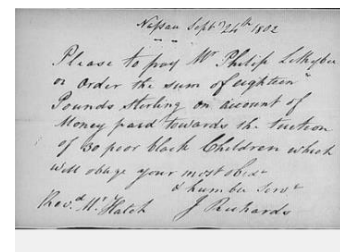 Nassau Sept 24th 1802
Please to pay Mr Philip Lethyber
or order the sum of eighteen
Pounds Sterling on account of
Money paid towards the tuetion
of 30 poor black Children which
will oblige your most obedt
& humble Servt
Revd Mr Hatch J Richards